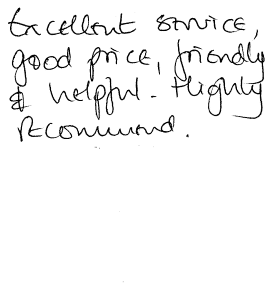 Excellent service,
good price, friendly
& helpful - Highly
recommend.